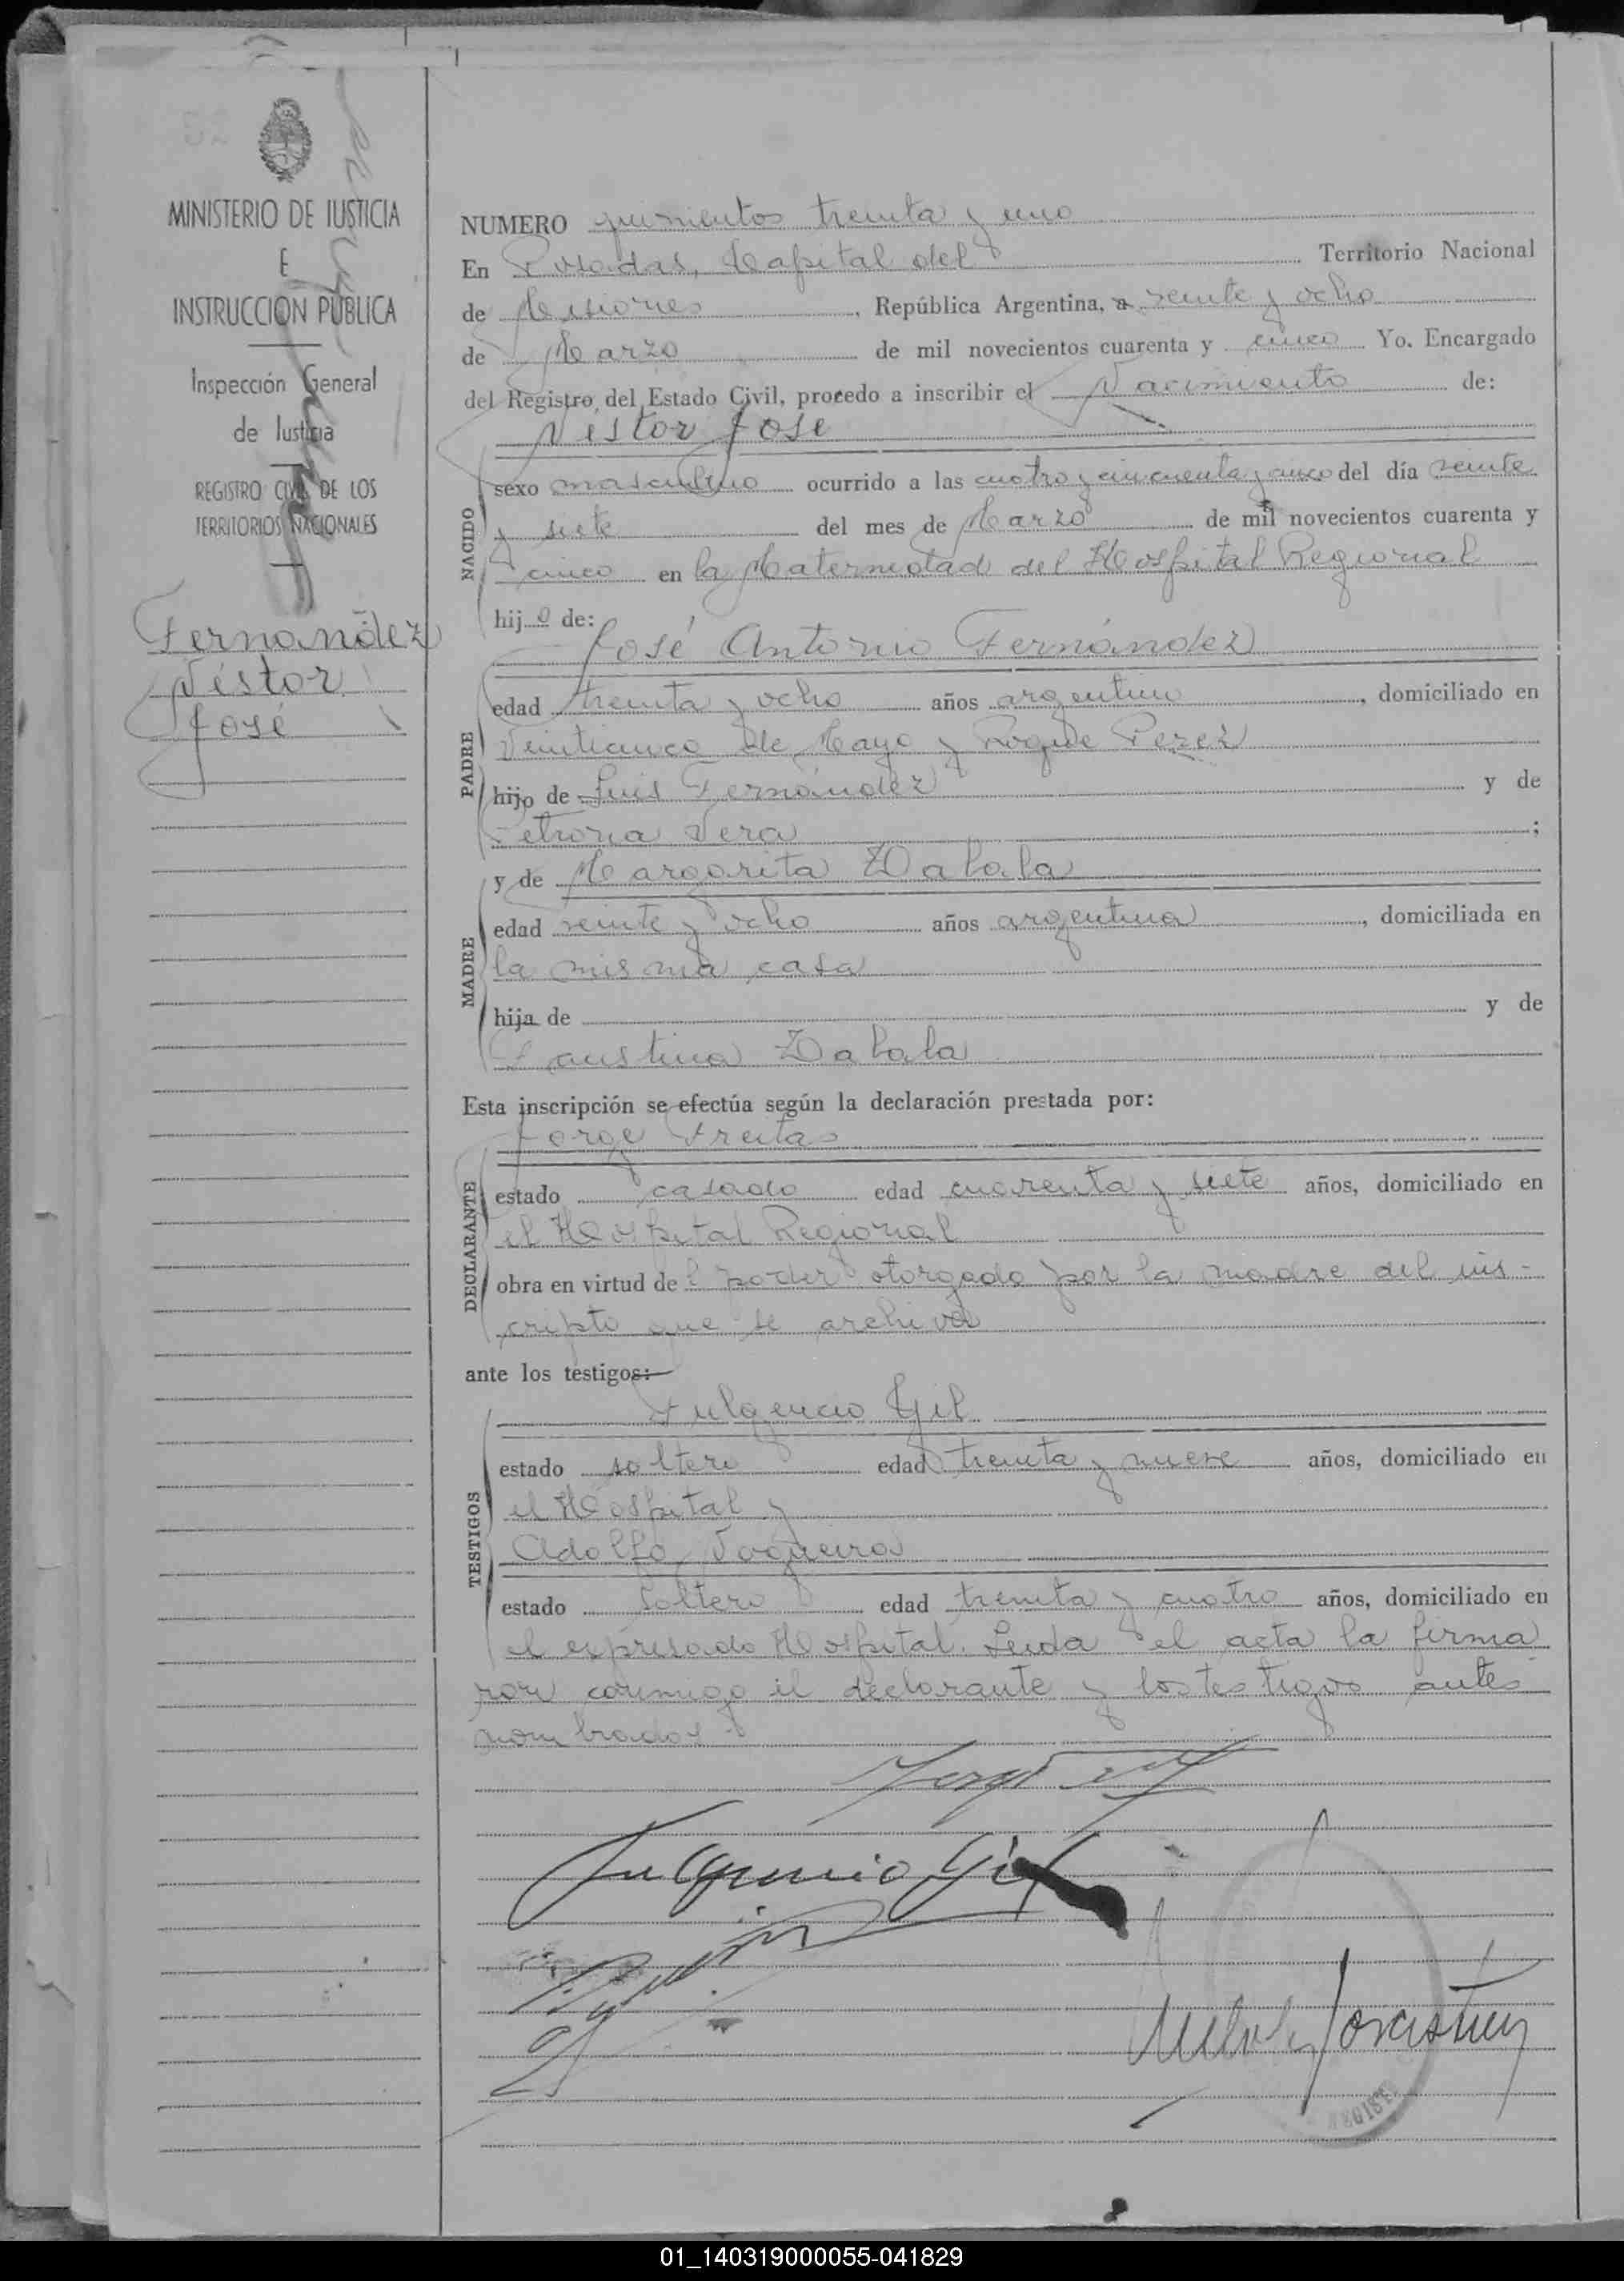 52
MINISTERIO DE JUSTICIA
E
INSTRUCCIÓN PÚBLICA
Inspección General
de Justicia
REGISTRO CIVIL DE LOS
TERRITORIOS NACIONALES
Fernandez
Néstor
José
NUMERO quinientos treinta y uno
En Posadas, Capital del Territorio Nacional
de Misiones, República Argentina, a veinte y ocho
de Marzo de mil novecientos cuarenta y cinco Yo. Encargado
del Registro del Estado Civil, procedo a inscribir el Nacimiento de:
Nestor José
NACIDO
sexo masculino ocurrido a las cuatro y cincuenta y cinco del día veinte
y siete del mes de Marzo de mil novecientos cuarenta y
cinco en la Maternidad del Hospital Regional
hijo de:
José Antonio Fernández
PADRE
edad treinta y ocho años argentino, domiciliado en
Veinticinco de Mayo y Roque Perez
hijo de Luis Fernández y de
Petrona Vera;
MADRE
y de Margarita Zabala
edad veinte y ocho años argentina, domiciliada en
la misma casa
hija de y de
Faustina Zabala
Esta inscripción se efectúa según la declaración prestada por:
Jorge Freitas
DECLARANTE
estado casado edad cuarenta y siete años, domiciliado en
el Hospital Regional
obra en virtud del poder otorgado por la madre del ins-
cripto que se archiva
ante los testigos:
TESTIGOS
Fulgencio Gil
estado soltero edad treinta y nueve años, domiciliado en
el Hospital y
Adolfo
estado soltero edad treinta y cuatro años, domiciliado en
el expresado Hospital. Leida el acta la firma
ron conmigo el declarante y los testigos antes
nombrados.
Jorge
Fulgencio Gil
REGISTRO
01_140319000055-041829